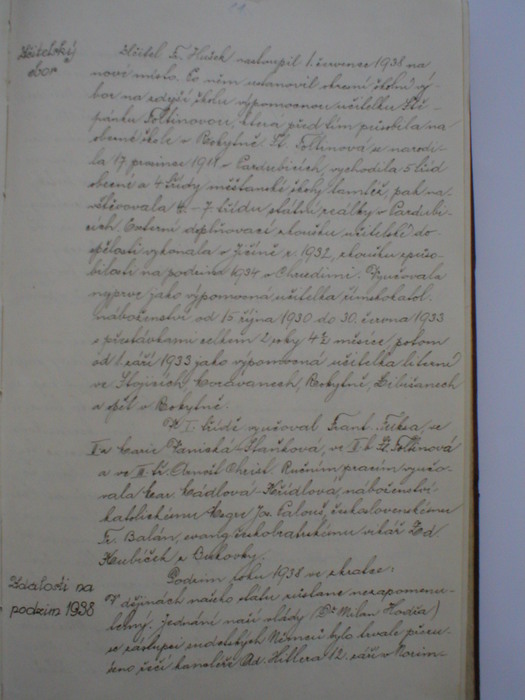 Učitelský
sbor
Učitel Fr. Hušek nastoupil 1. července 1938 na
nové místo. Po něm ustanovil okresní školní vý-
bor na zdejší školu výpomocnou učitelku Ště-
pánku Foltinovou, která před tím působila na
obecné škole v Rokytně. Št. Foltinová se narodi-
la 17. prosince 1911 v Pardubicích, vychodila 5 tříd
obecné a 4 třídy měšťanské školy tamtéž, pak na-
vštěvovala 4. - 7. třídu státní reálky v Pardubi-
cích. Externí doplňovací zkoušku učitelské do-
spělosti vykonala v Jičíně r. 1932, zkoušku způso-
bilosti na podzim 1934 v Chrudimi. Vyučovala
nejprve jako výpomocná učitelka římskokatol.
náboženství od 15. října 1930 do 30. června 1933
s přestávkami celkem 2 roky 4½ měsíce, potom
od 1. září 1933 jako výpomocná učitelka literní
ve Stojicích, Moravanech, Rokytně, Libišanech
a opět v Rokytně.
V I. třídě vyučoval Frant. Fuksa, ve
II.a Marie Vanická-Plaňková, ve II.b Št. Foltinová
a ve III. tř. Arnošt Christ. Ručním pracím vyučo-
vala Mar. Mádlová-Křídlová, náboženství
katolickému Msgr Jos. Palouš, československému
Fr. Balán, evang. českobratrskému vikář Ed.
Hubíček z Bukovky.
Události na
podzim 1938
Podzim roku 1938 ve zkratce:
V dějinách našeho státu zůstane nezapomenu-
telný. Jednání naší vlády (Dr Milan Hodža)
se zástupci sudetských Němců bylo trvale přeru-
šeno řečí kancléře Ad. Hitlera 12. září v Norim-